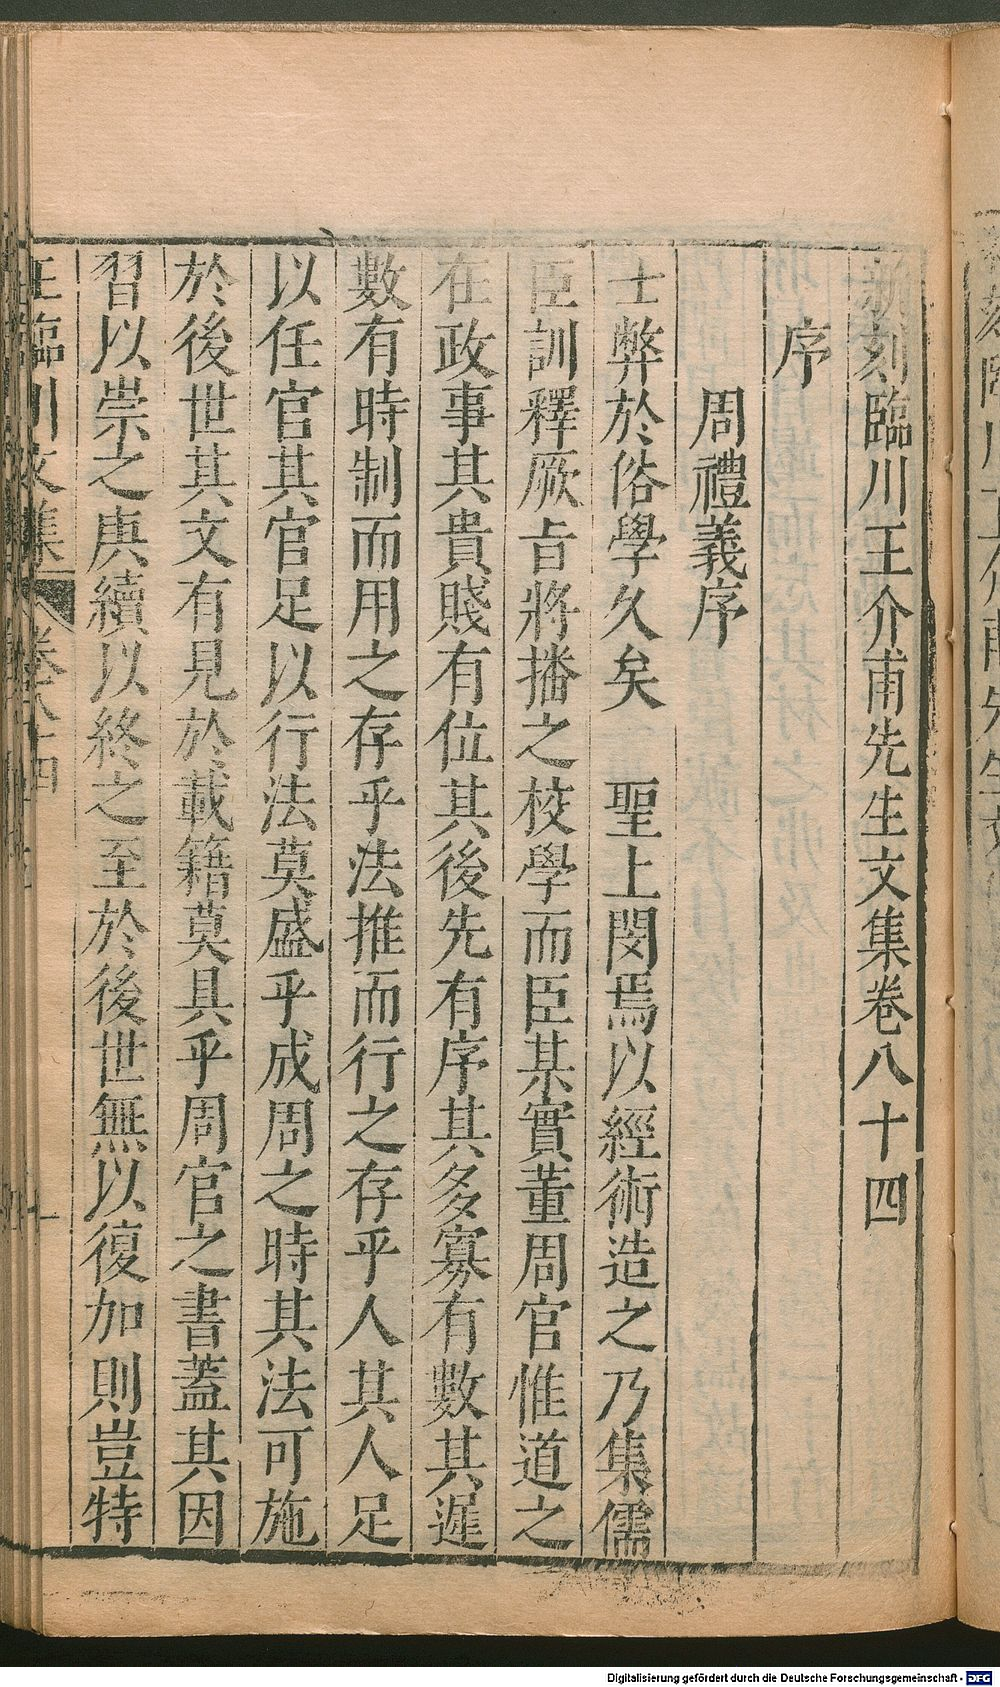 新刻臨川王介甫先生文集卷八十四
序
周禮義序
士弊於俗學久矣　聖上閔焉以經術造之乃集儒
臣訓釋厥旨將播之校學而臣某實董周官惟道之
在政事其貴賤有位其後先有序其多寡有數其遲
數有時制而用之存乎法推而行之存乎人其人足
以任官其官足以行法莫盛乎成周之時其法可施
於後世其文有見於載籍莫具乎周官之書蓋其因
習以崇之庚續以終之至於後世無以復加則豈特
王臨川文集 卷八十四 一
Digitalisierung gefördert durch die Deutsche Forschungsgemeinschaft - DFG